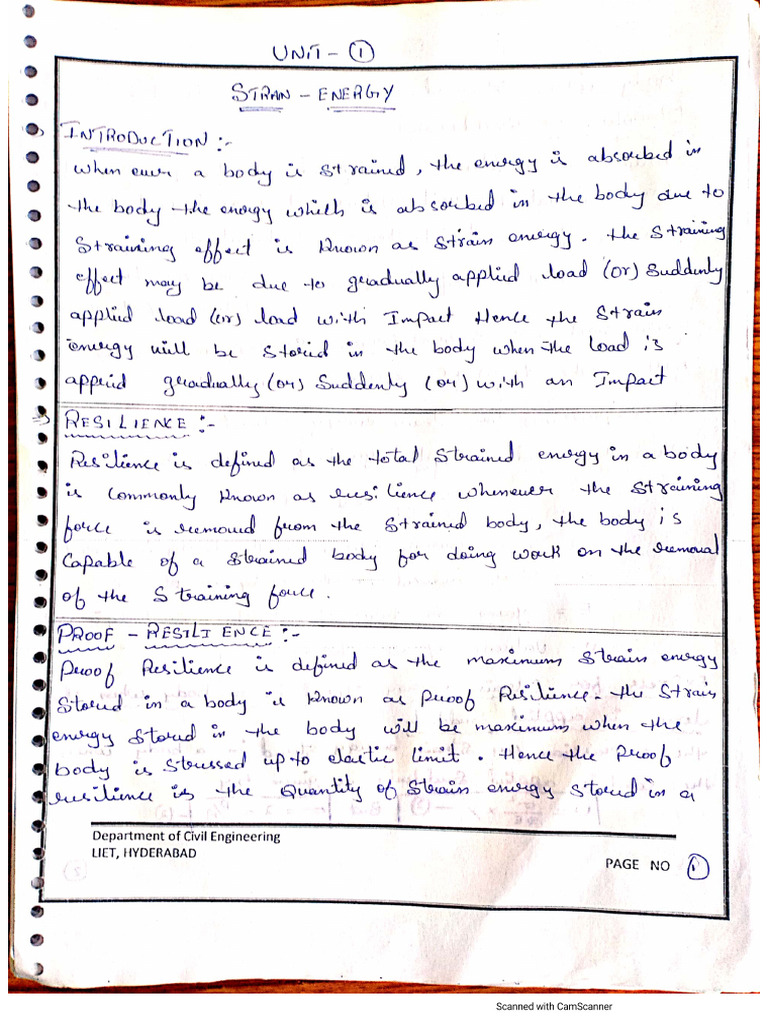 UNIT - 1
STRAN - ENERGY
INTRODUCTION :-
when ever a body is strained, the energy is absorbed in
the body the energy which is absorbed in the body due to
straining effect is known as strain energy. the straining
effect may be due to gradually applied load (or) suddenly
applied load (or) load with Impact Hence the strain
energy will be stored in the body when the load is
applied gradually (or) suddenly (or) with an Impact
RESILIENCE :-
Resilience is defined as the total strained energy in a body
is commonly known as resilience whenever the straining
force is removed from the strained body, the body is
capable of a strained body for doing work on the removal
of the straining force.
PROOF - RESILIENCE :-
Proof Resilience is defined as the maximum strain energy
stored in a body is known as proof Resilience. the strain
energy stored in the body will be maximum when the
body is stressed up to elastic limit. Hence the proof
resilience is the Quantity of strain energy stored in a
Department of Civil Engineering
LIET, HYDERABAD
PAGE NO 1
Scanned with CamScanner